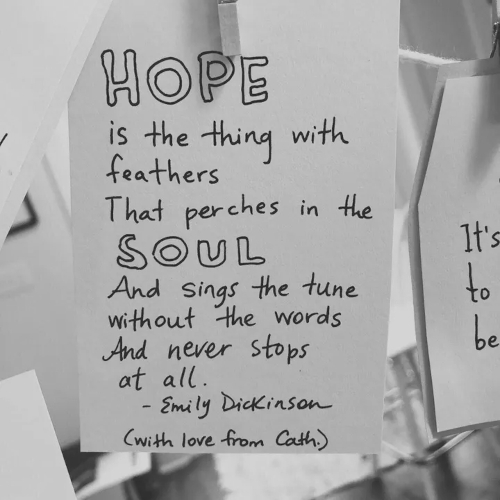 HOPE
is the thing with
feathers
That perches in the
SOUL
And sings the tune
without the words
And never stops
at all.
- Emily Dickinson
(with love from Cath.)
It's
to
be